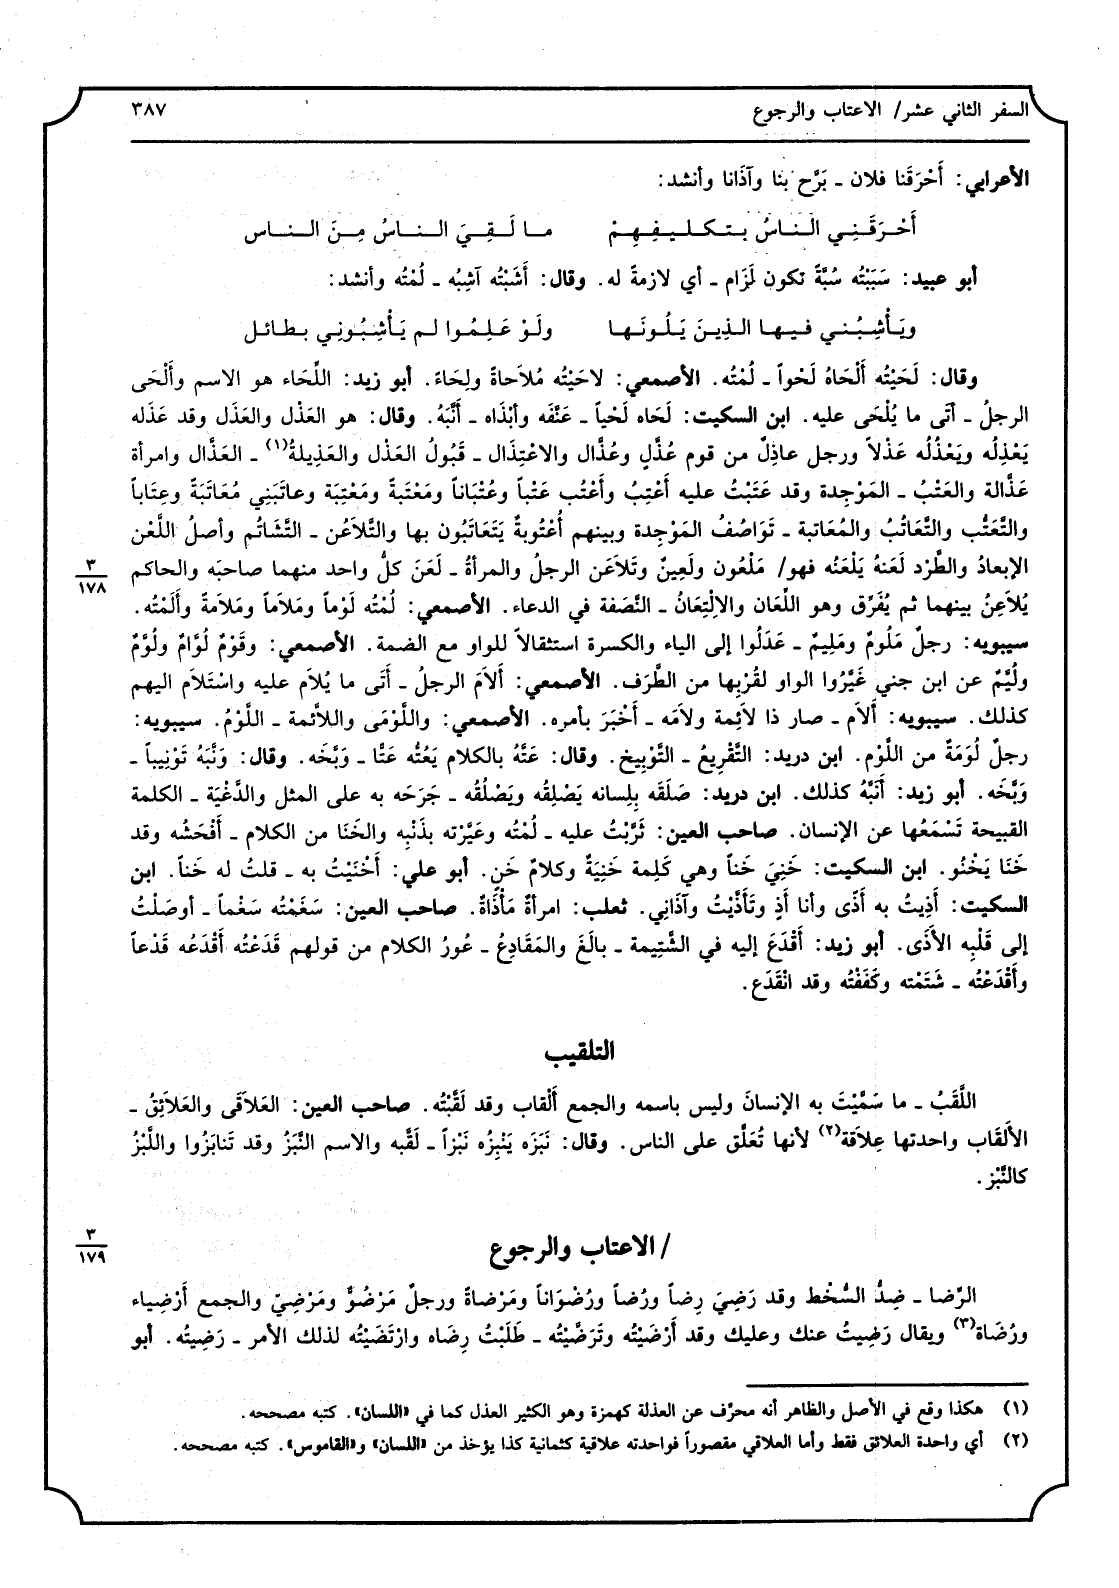 السفر الثاني عشر/ الاعتاب والرجوع ٣٨٧
الأعرابي: أَحْرَقَنا فلان ـ بَرَّح بنا وآذَانا وأنشد:
أَحْرَقَنِي النَّاسُ بتكليفِهِمْ ما لَقِيَ الناسُ مِنَ الناس
أبو عبيد: سَبَبْتُه سُبَّةً تكون لَزَام ـ أي لازمةً له. وقال: أَشَبْتُه آشِبُه ـ لُمْتُه وأنشد:
ويَأْشِبُني فيها الذِينَ يَلُونَها ولَوْ عَلِمُوا لم يَأْشِبُونِي بطائل
وقال: لَحَيْتُه أَلْحَاهُ لَحْواً ـ لُمْتُه. الأصمعي: لاحَيْتُه مُلاَحاةً ولِحَاءً. أبو زيد: اللِّحَاء هو الاسم وأَلْحَى
الرجلُ ـ أتَى ما يُلْحَى عليه. ابن السكيت: لَحَاه لَحْياً ـ عَنَّفَه وأبْذَاه ـ أنَّبَهُ. وقال: هو العَذْل والعَذَل وقد عَذَله
يَعْذِلُه ويَعْذُلُه عَذْلاً ورجل عاذِلٌ من قوم عُذَّلٍ وعُذَّال والاعْتِذَال ـ قَبُولُ العَذْل والعَذِيلةُ(١) ـ العَذَّال وامرأة
عَذَّالة والعَتْبُ ـ المَوْجِدة وقد عَتَبْتُ عليه أَعْتِبُ وأَعْتُب عَتْباً وعُتْبَاناً ومَعْتَبةً ومَعْتِبَة وعاتَبَنِي مُعَاتَبَةً وعِتَاباً
والتَّعَتُّب والتَّعَاتُبُ والمُعاتبة ـ تَوَاصُفُ المَوْجِدة وبينهم أُعْتُوبةٌ يَتَعَاتَبُون بها والتَّلاَعُن ـ التَّشَاتُم وأصلُ اللَّعْن
الإبعادُ والطَّرْد لَعَنهُ يَلْعَنُه فهو/ مَلْعُون ولَعِينٌ وتَلاَعَن الرجلُ والمرأةُ ـ لَعَنَ كلُّ واحد منهما صاحبَه والحاكم
٣
١٧٨
يُلاَعِنُ بينهما ثم يُفَرِّق وهو اللِّعَان والالْتِعَانُ ـ النَّصَفة في الدعاء. الأصمعي: لُمْتُه لَوْماً ومَلاَماً ومَلاَمةً وأَلَمْتُه.
سيبويه: رجلٌ مَلُومٌ ومَلِيمٌ ـ عَدَلُوا إلى الياء والكسرة استثقالاً للواو مع الضمة. الأصمعي: وقَوْمٌ لُوَّامٌ ولُوَّمٌ
ولُيَّمٌ عن ابن جني غَيَّرُوا الواو لقُرْبِها من الطَّرَف. الأصمعي: أَلاَمَ الرجلُ ـ أَتَى ما يُلاَم عليه واسْتَلاَم اليهم
كذلك. سيبويه: أَلاَم ـ صار ذا لاَئِمة ولاَمَه ـ أَخْبَرَ بأمره. الأصمعي: واللَّوْمَى واللاَّئمة ـ اللَّوْمُ. سيبويه:
رجلٌ لُوَمَةٌ من اللَّوْم. ابن دريد: التَّقْرِيعُ ـ التَّوْبِيخ. وقال: عَتَّهُ بالكلام يَعُتُّه عَتًّا ـ وَبَّخَه. وقال: وَنَّبَهُ تَوْنِيباً ـ
وَبَّخَه. أبو زيد: أَنَّبَهُ كذلك. ابن دريد: صَلَقَه بِلسانه يَصْلِقُه ويَصْلُقُه ـ جَرَحَه به على المثل والدَّغْيَة ـ الكلمة
القبيحة تَسْمَعُها عن الإنسان. صاحب العين: ثَرَّبْتُ عليه ـ لُمْتُه وعَيَّرْته بذَنْبِه والخَنَا من الكلام ـ أَفْحَشُه وقد
خَنَا يَخْنُو. ابن السكيت: خَنِيَ خَناً وهي كَلِمة خَنِيَةٌ وكلامٌ خَنٍ. أبو علي: أَخْنَيْتُ به ـ قلتُ له خَناً. ابن
السكيت: أَذِيتُ به أَذًى وأنا أَذٍ وتَأَذَّيْتُ وآذَانِي. ثعلب: امرأةٌ مَأْذَاةٌ. صاحب العين: سَغَمْتُه سَغْماً ـ أوصَلْتُ
إلى قَلْبِه الأَذَى. أبو زيد: أَقْدَعَ إليه في الشَّتِيمة ـ بالَغَ والمَقَادِعُ ـ عُورُ الكلام من قولهم قَدَعْتُه أَقْدَعُه قَدْعاً
وأَقْدَعْتُه ـ شَتَمْته وكَفَفْتُه وقد انْقَدَع.
التلقيب
اللَّقَبُ ـ ما سَمَّيْتَ به الإنسانَ وليس باسمه والجمع أَلْقاب وقد لَقَّبْتُه. صاحب العين: العَلاَقَى والعَلاَئِقُ ـ
الأَلقَاب واحدتها عِلاَقة(٢) لأنها تُعَلَّق على الناس. وقال: نَبَزَه يَنْبِزُه نَبْزاً ـ لَقَّبه والاسم النَّبَزُ وقد تَنابَزُوا واللَّبْزُ
كالنَّبْز.
/ الاعتاب والرجوع
٣
١٧٩
الرِّضا ـ ضِدُّ السُّخْط وقد رَضِيَ رِضاً ورُضاً ورُضْوَاناً ومَرْضاةً ورجلٌ مَرْضُوٌّ ومَرْضِيّ والجمع أَرْضِياء
ورُضَاة(٣) ويقال رَضِيتُ عنك وعليك وقد أَرْضَيْتُه وتَرَضَّيْتُه ـ طَلَبْتُ رِضَاه وارْتَضَيْتُه لذلك الأمر ـ رَضِيتُه. أبو
(١) هكذا وقع في الأصل والظاهر أنه محرّف عن العذلة كهمزة وهو الكثير العذل كما في «اللسان». كتبه مصححه.
(٢) أي واحدة العلائق فقط وأما العلاقي مقصوراً فواحدته علاقية كثمانية كذا يؤخذ من «اللسان» و«القاموس». كتبه مصححه.